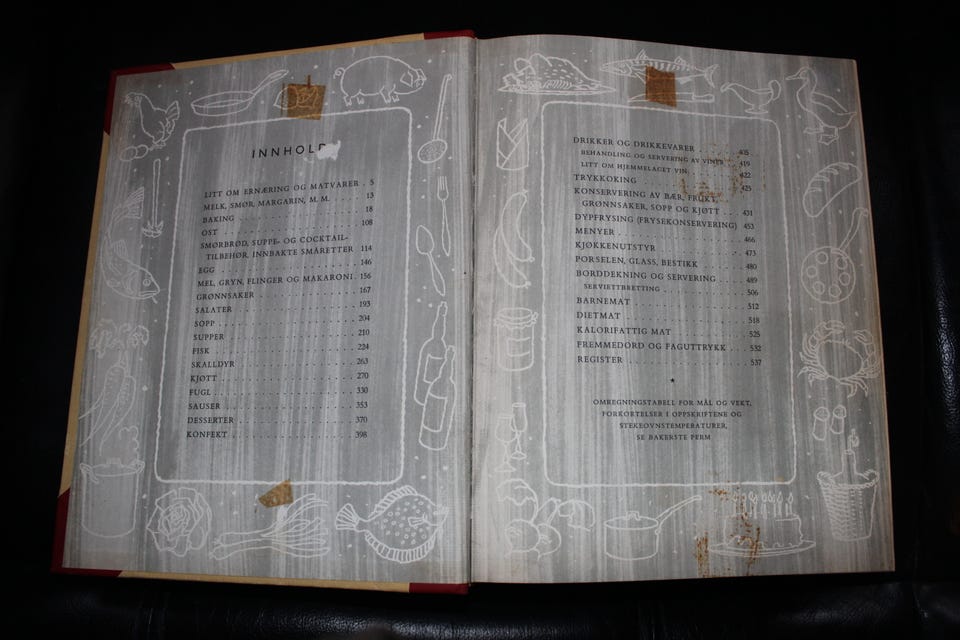 INNHOLD
LITT OM ERNÆRING OG MATVARER . 5
MELK, SMØR, MARGARIN, M. M. . . . . . 13
BAKING . . . . . . . . . . . . . . . . 18
OST . . . . . . . . . . . . . . . . . 108
SMØRBRØD, SUPPE- OG COCKTAIL-
TILBEHØR, INNBAKTE SMÅRETTER 114
EGG . . . . . . . . . . . . . . . . . 146
MEL, GRYN, FLINGER OG MAKARONI . 156
GRØNNSAKER . . . . . . . . . . . . . 167
SALATER . . . . . . . . . . . . . . . 193
SOPP . . . . . . . . . . . . . . . . . 204
SUPPER . . . . . . . . . . . . . . . . 210
FISK . . . . . . . . . . . . . . . . . 224
SKALLDYR . . . . . . . . . . . . . . . 263
KJØTT . . . . . . . . . . . . . . . . 270
FUGL . . . . . . . . . . . . . . . . . 330
SAUSER . . . . . . . . . . . . . . . . 353
DESSERTER . . . . . . . . . . . . . . 370
KONFEKT . . . . . . . . . . . . . . . 398
DRIKKER OG DRIKKEVARER . . . . . . 405
BEHANDLING OG SERVERING AV VINER . 419
LITT OM HJEMMELAGET VIN . . . . . . 422
TRYKKOKING . . . . . . . . . . . . . 425
KONSERVERING AV BÆR, FRUKT,
GRØNNSAKER, SOPP OG KJØTT . . . 431
DYPFRYSING (FRYSEKONSERVERING) 453
MENYER . . . . . . . . . . . . . . . . 466
KJØKKENUTSTYR . . . . . . . . . . . 473
PORSELEN, GLASS, BESTIKK . . . . . 480
BORDDEKNING OG SERVERING . . . . 489
SERVIETTBRETTING . . . . . . . . . . 506
BARNEMAT . . . . . . . . . . . . . . 512
DIETMAT . . . . . . . . . . . . . . . 518
KALORIFATTIG MAT . . . . . . . . . . 525
FREMMEDORD OG FAGUTTRYKK . . . 532
REGISTER . . . . . . . . . . . . . . . 537
★
OMREGNINGSTABELL FOR MÅL OG VEKT,
FORKORTELSER I OPPSKRIFTENE OG
STEKEOVNSTEMPERATURER,
SE BAKERSTE PERM